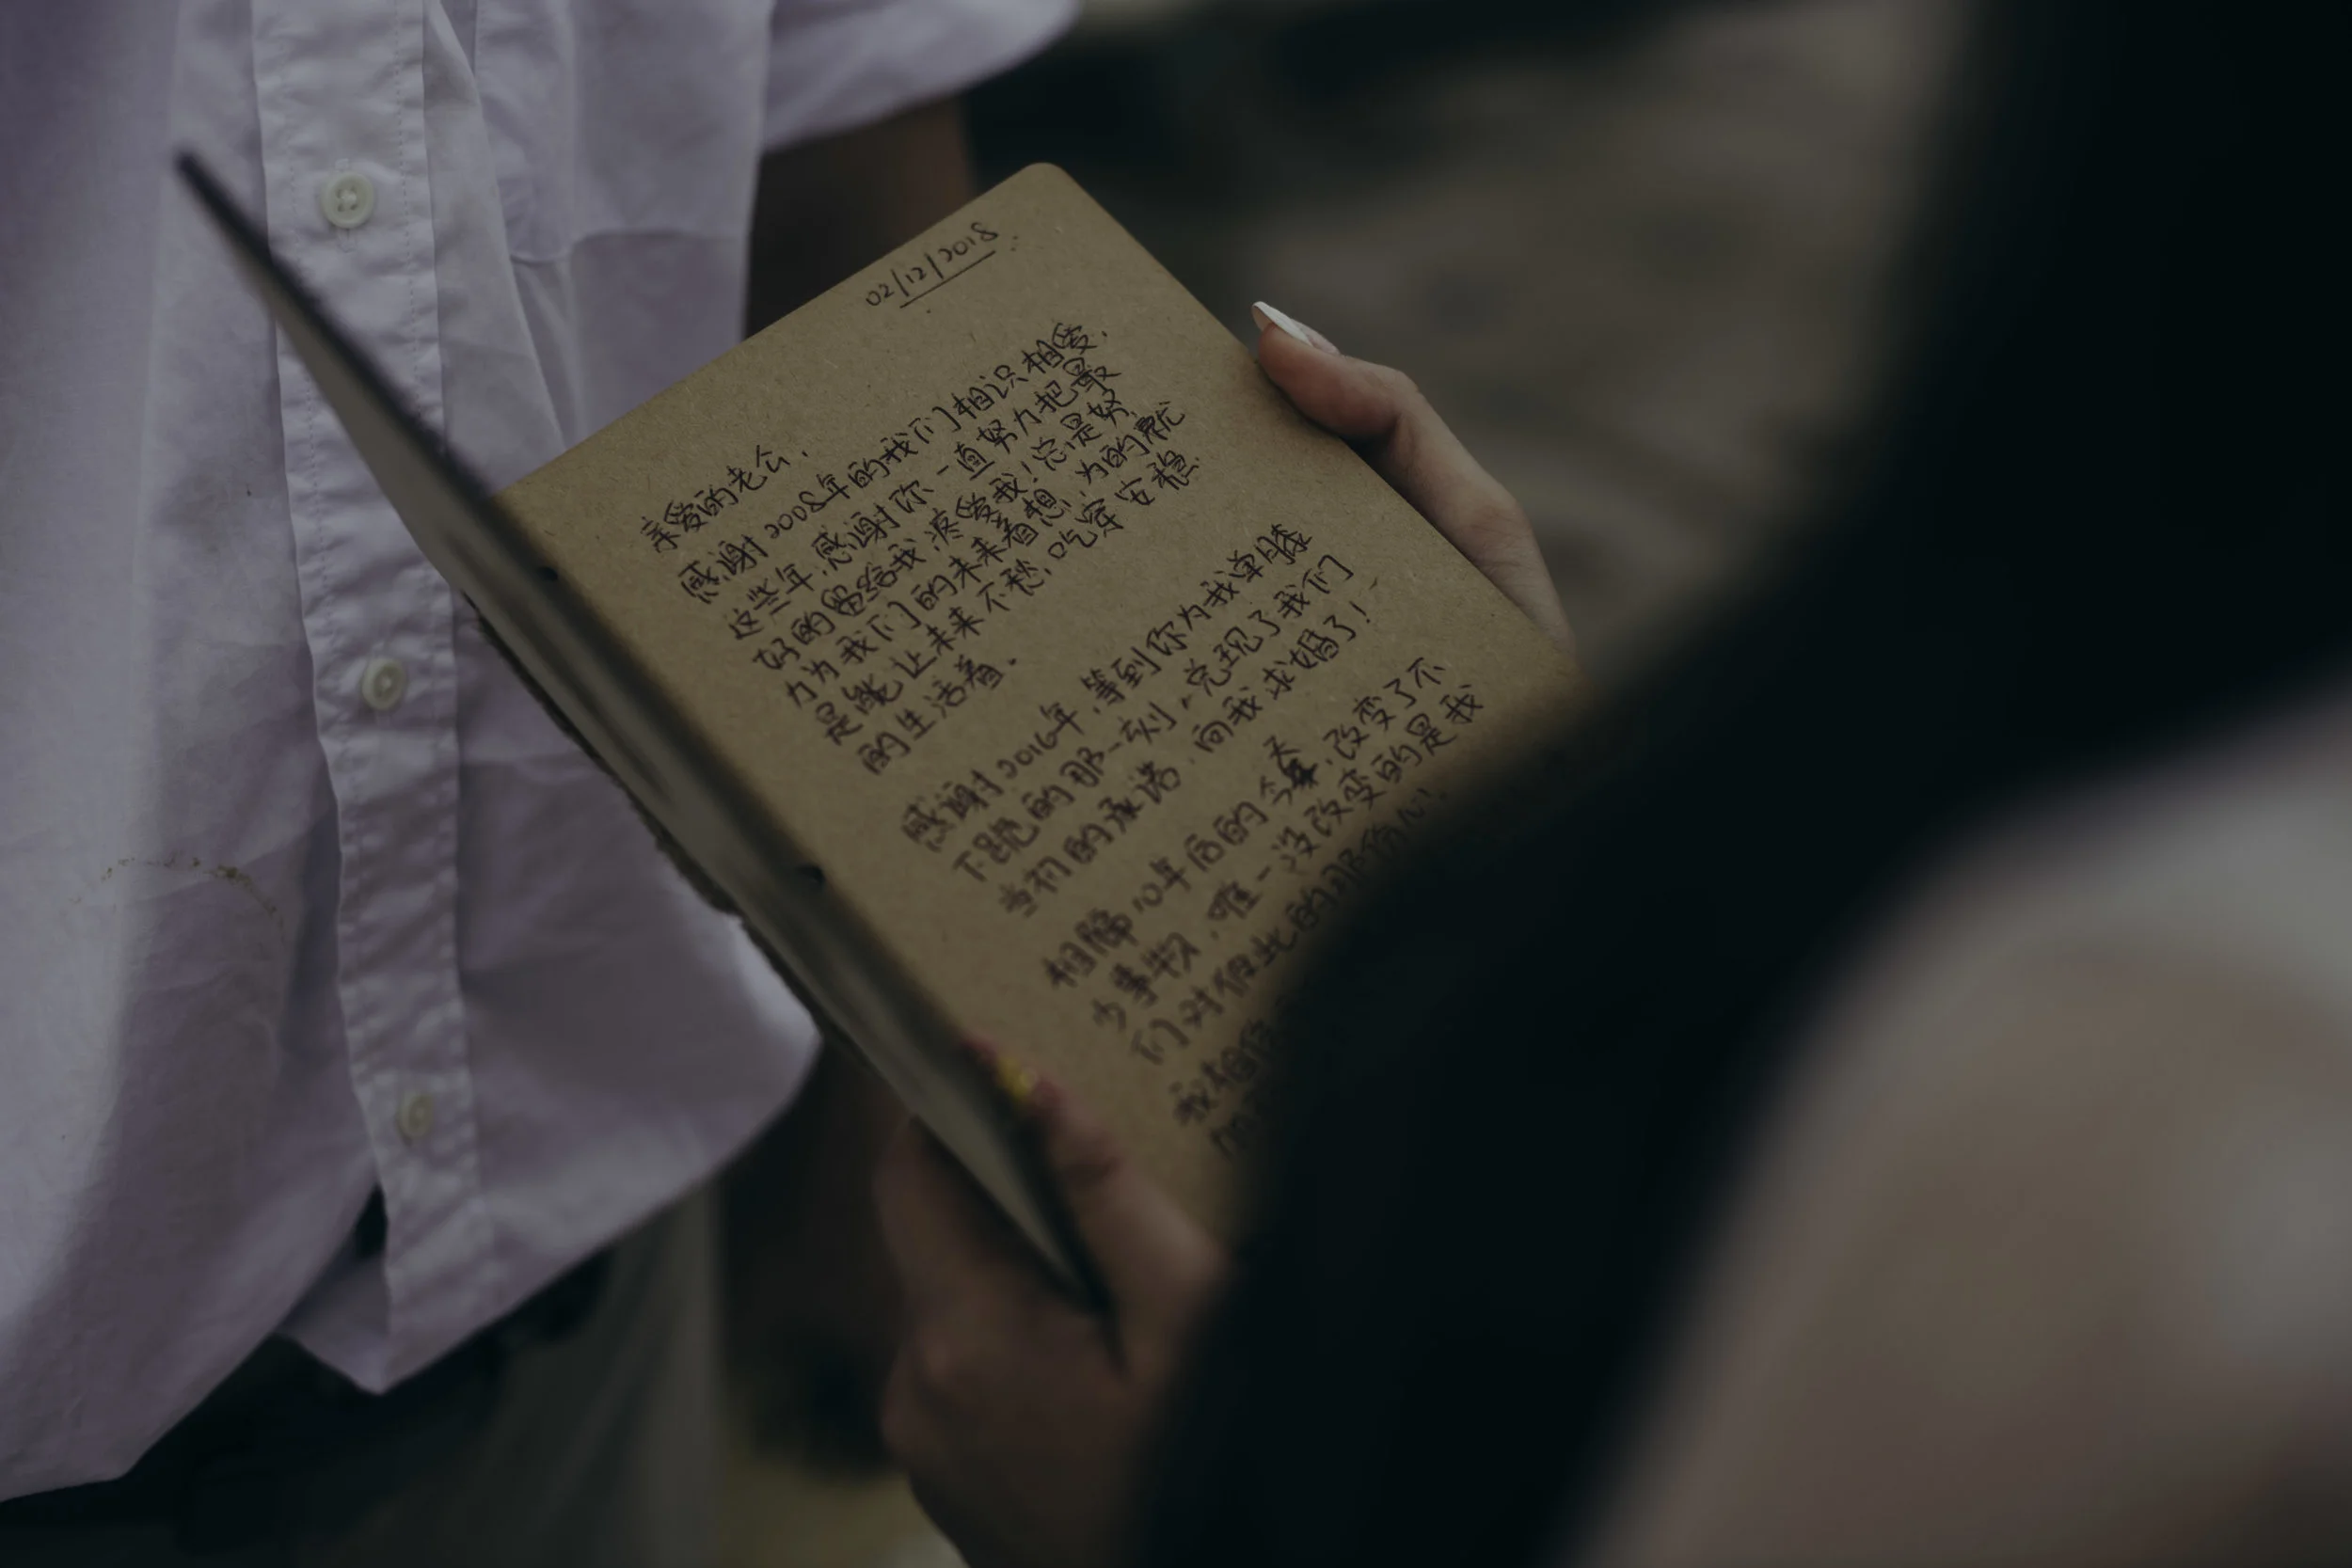 02/12/2018
亲爱的老公,
感谢2008年的我们相识相爱,
这些年,感谢你一直努力把最
好的留给我,疼爱我!总是努
力为我们的未来着想,为的就
是能让未来不愁,吃穿安稳
的生活着.
感谢2016年,等到你为我单膝
下跪的那一刻,兑现了我们
当初的承诺,向我求婚了!
相隔10年后的今天,改变了不
少事物,唯一没改变的是我
们对彼此的那份心!
我相信